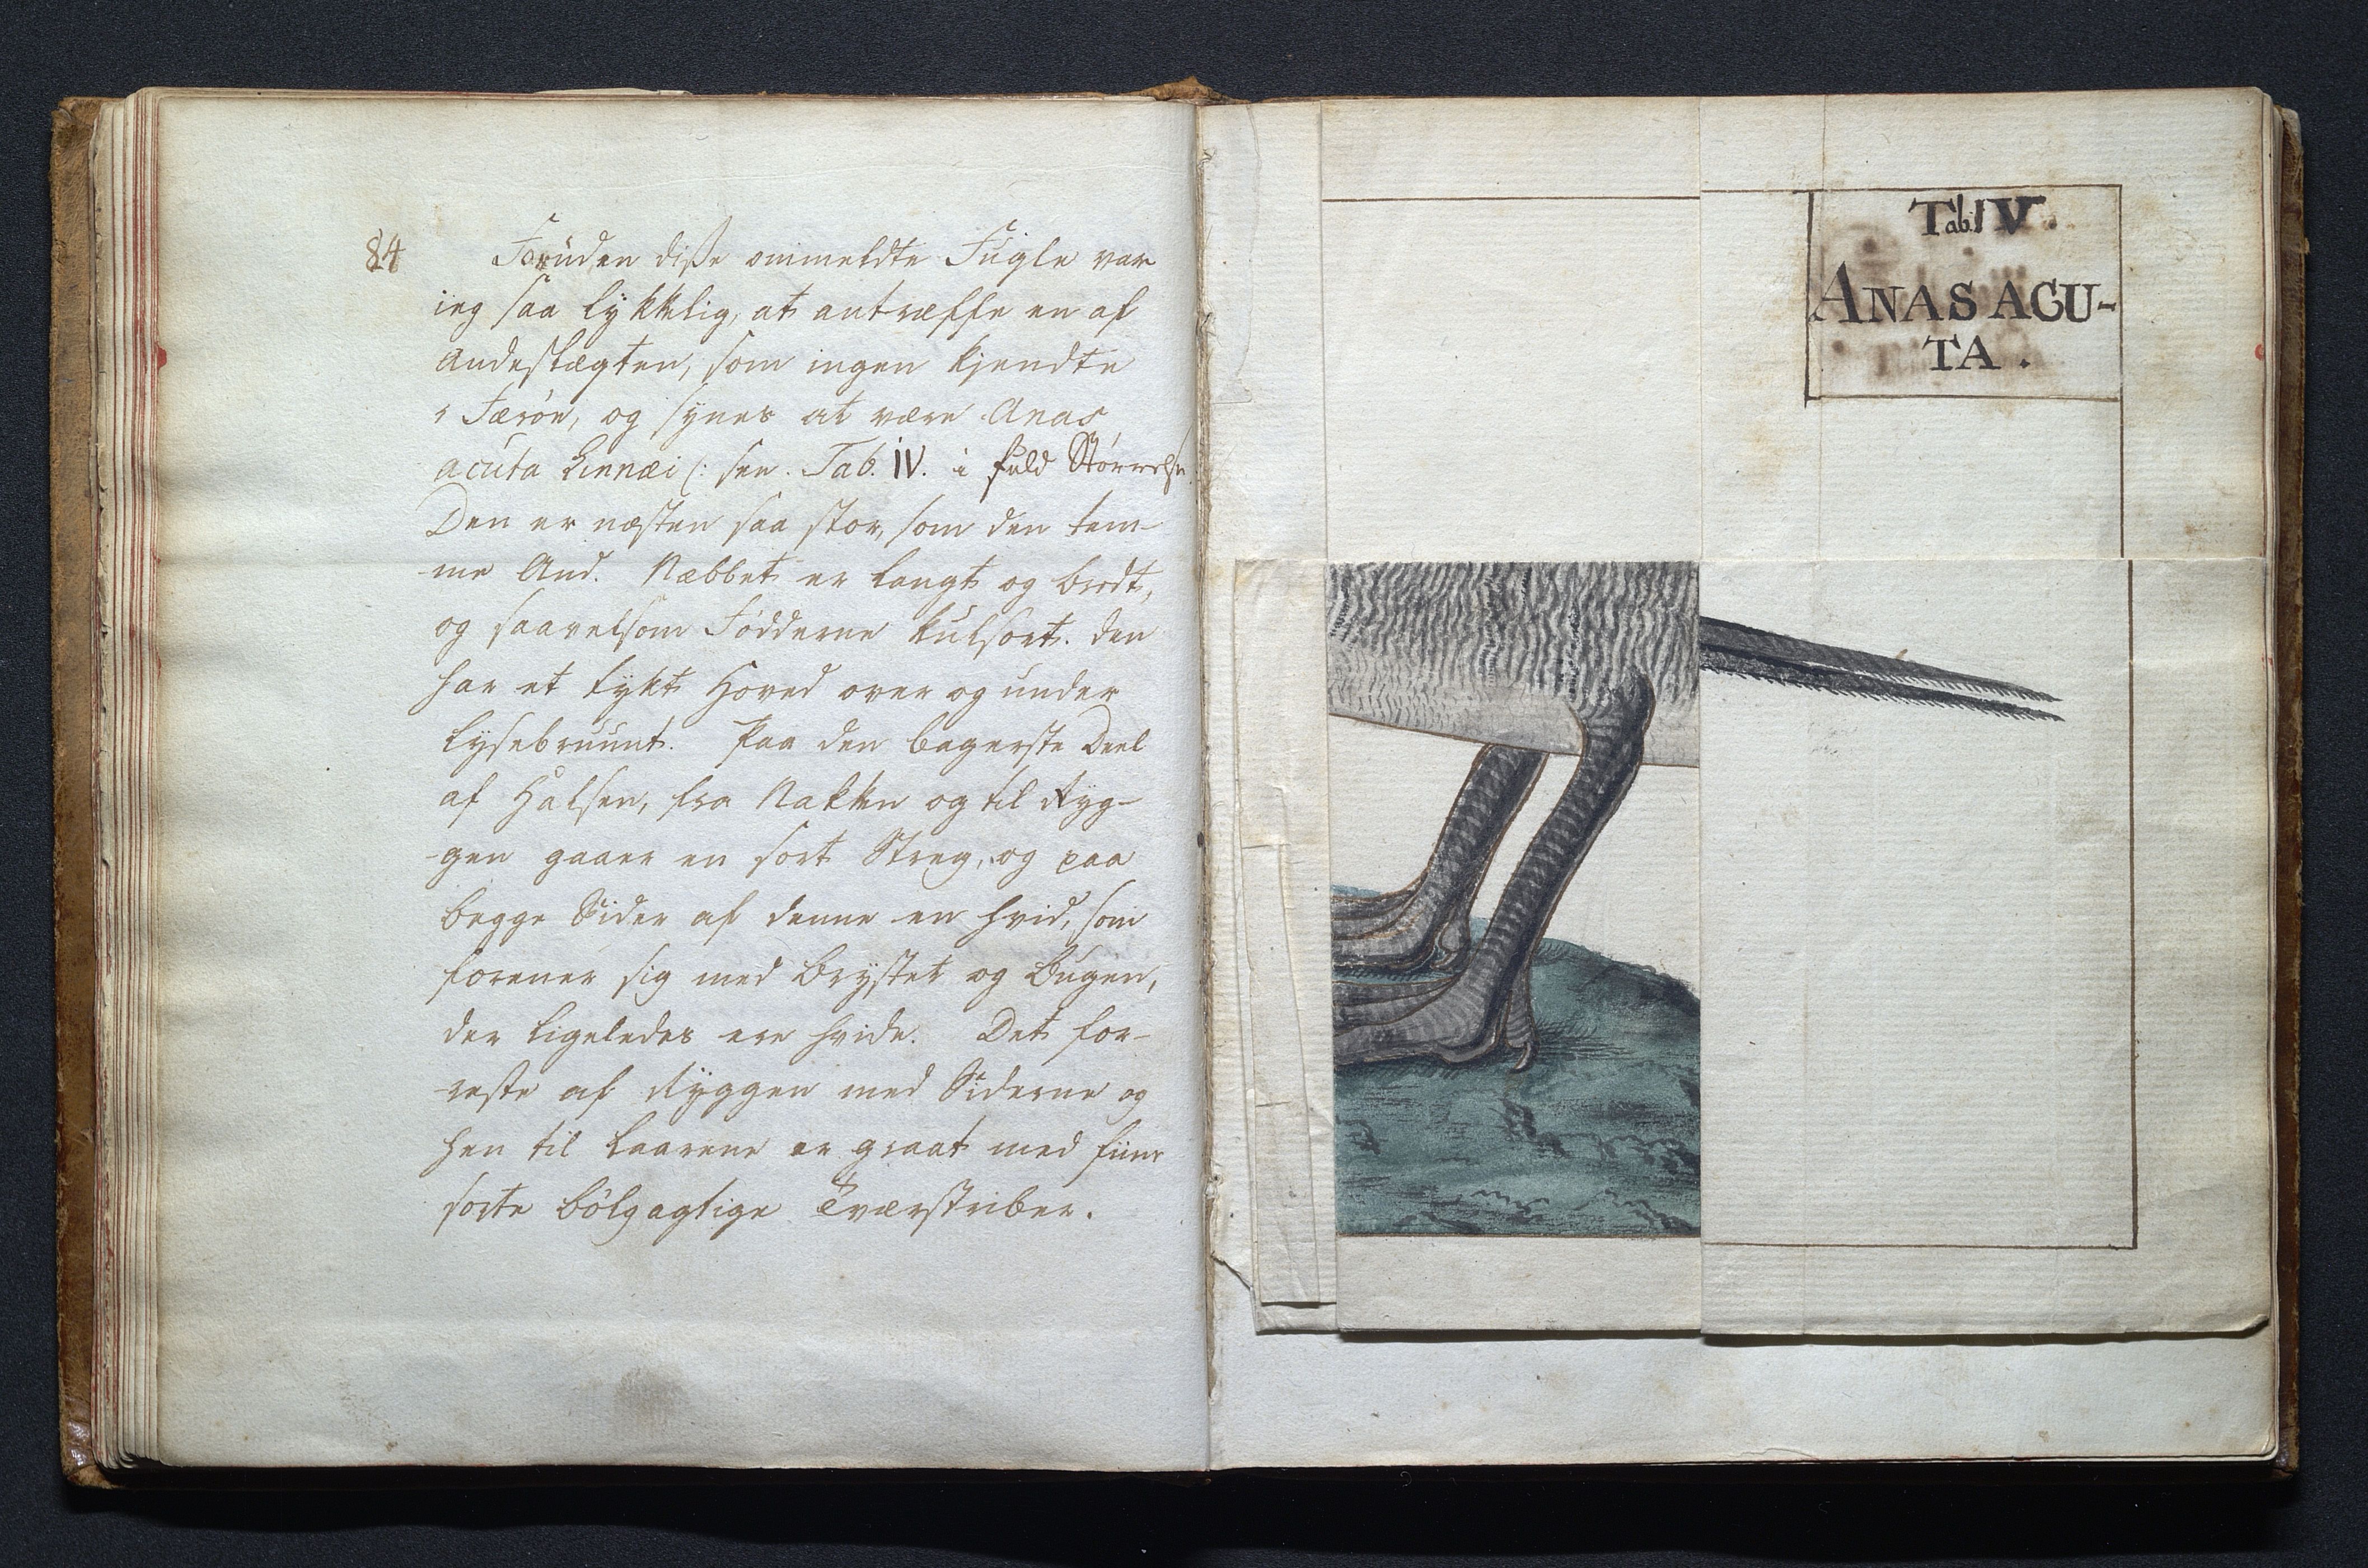 84
Foruden disse ommeldte Fugle var
ieg saa lykkelig, at antræffe en af
Andeslægten, som ingen kjendte
i Færöe, og synes at være Anas
acuta Linnæi (: see Tab. IV. i fuld Störrelse.
Den er næsten saa stor, som den tam-
me And. Næbbet er langt og bredt,
og saavelsom Födderne kulsort. Den
har et tykt Hoved over og under
lysebruunt. Paa den bagerste Deel
af Halsen, fra Nakken og til Ryg-
-gen gaaer en sort Streg, og paa
begge Sider af denne en hvid, som
forener sig med Brystet og Bugen,
der ligeledes ere hvide. Det for-
-reste af Ryggen med Siderne og
hen til Laarene er graat med fiine
sorte bölgagtige Tværstriber.
Tab. IV.
ANAS ACU-
TA.